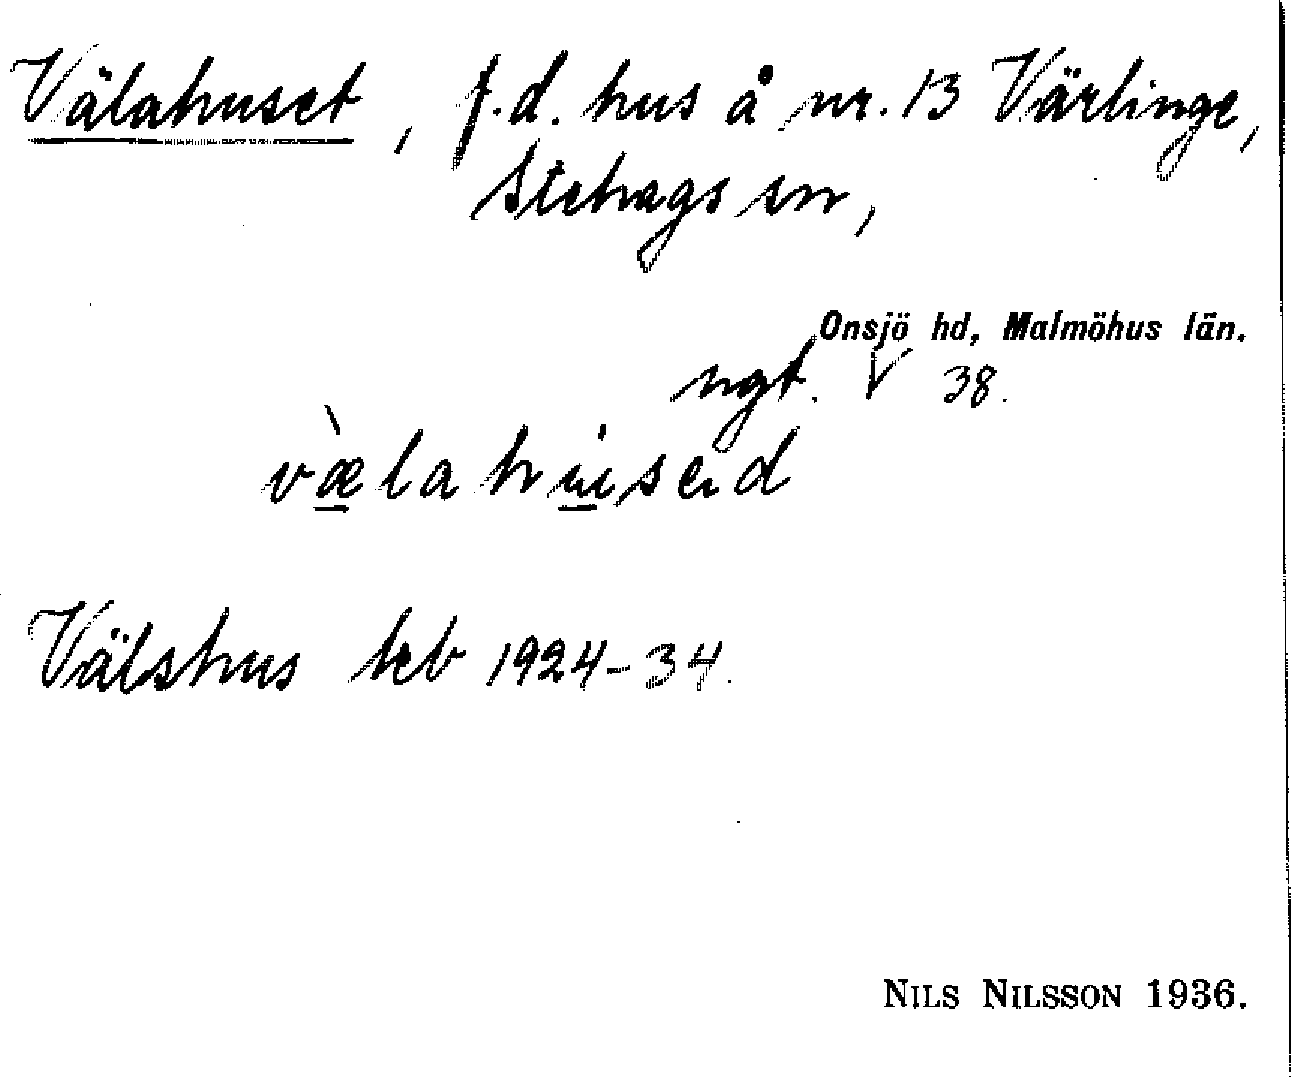 Välahuset, f.d. hus å nr. 13 Värlinge,
Stehags sn,
Onsjö hd, Malmöhus län.
ngt. V 38.
væ̀lahused
Välshus kcb 1924-34.
NILS NILSSON 1936.